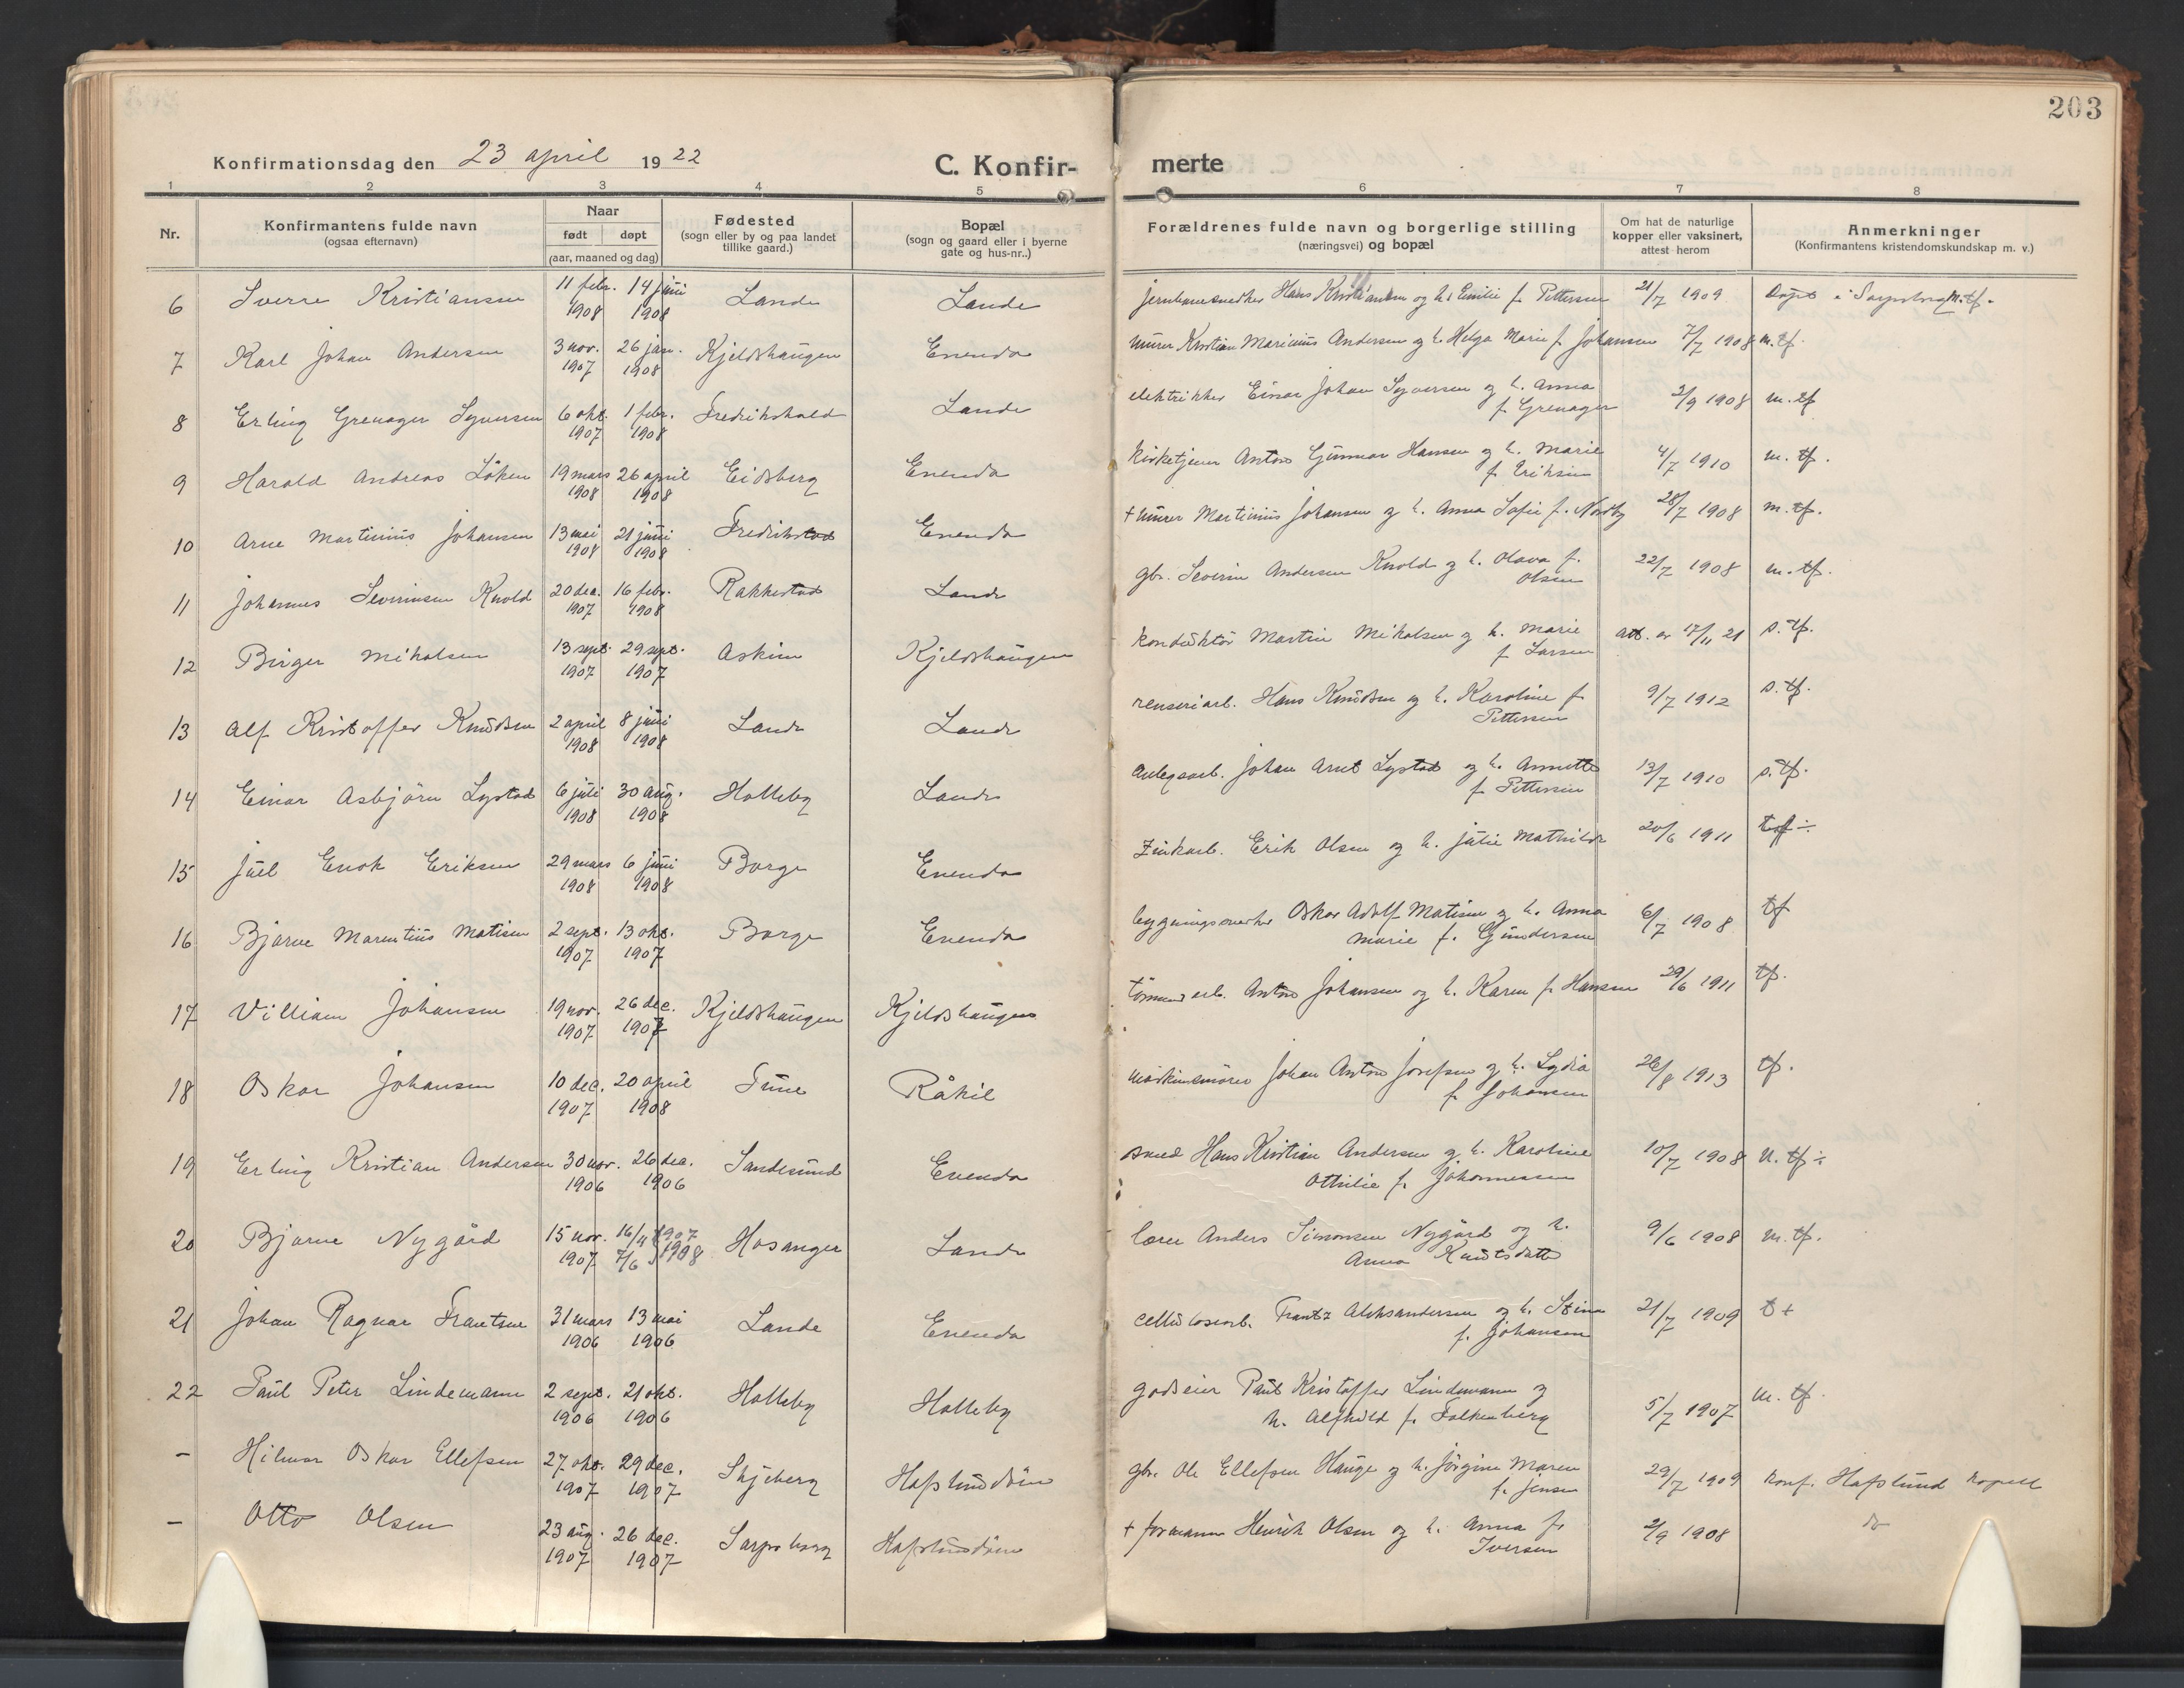 203
Konfirmationsdag den 23 april 1922 C. Konfir- merte
1 2 3 4 5 6 7 8
Nr.
Konfirmantens fulde navn
(ogsaa efternavn)
Naar
født døpt
(aar, maaned og dag)
Fødested
(sogn eller by og paa landet
tillike gaard.)
Bopæl
(sogn og gaard eller i byerne
gate og hus-nr..)
Forældrenes fulde navn og borgerlige stilling
(næringsvei) og bopæl
Om hat de naturlige
kopper eller vaksinert,
attest herom
Anmerkninger
(Konfirmantens kristendomskundskap m. v.)
6 Sverre Kristiansen 11 febr. 1908 14 juni 1908 Lande Lande jernbanesnedker Hans Kristiansen og h. Emilie f. Pettersen 21/7 1909 Døpt i Sarpsborg M.tf.
7 Karl Johan Andersen 3 nov. 1907 26 jan. 1908 Kjeldshaugen Enenda murer Kristian Marinius Andersen og h. Helga Marie f. Johansen 7/7 1908 m.tf.
8 Erling Grenager Syversen 6 okt. 1907 1 febr. 1908 Fredrikshald Lande elektriker Einar Johan Syversen og h. Anna
f. Grenager 2/9 1908 m.tf
9 Harald Andreas Löken 19 mars 1908 26 april 1908 Eidsberg Enenda kirketjener Anton Gunnar Hansen og h. Marie
f. Eriksen 4/7 1910 m. tf.
10 Arne Martinius Johansen 13 mai 1908 21 juni 1908 Fredrikstad Enenda + murer Martinius Johansen og h. Anna Sofie f. Nordby 28/7 1908 m.tf.
11 Johannes Severinsen Knold 20 dec. 1907 16 febr. 1908 Rakkestad Lande gbr. Severin Andersen Knold og h. Olava f.
Olsen 22/7 1908 m.tf.
12 Birger Mikalsen 13 sept. 1907 29 sept. 1907 Askim Kjeldshaugen konduktör Martin Mikalsen og h. Marie
f. Larsen att. av 17/11 21 s.tf.
13 Alf Kristoffer Knudsen 2 april 1908 8 juni 1908 Lande Lande renseriarb. Hans Knudsen og h. Karoline f.
Pettersen 9/7 1912 s.tf.
14 Einar Asbjörn Lystad 6 juli 1908 30 aug. 1908 Holleby Lande anlegsarb. Johan Arnt Lystad og h. Annette
f. Pettersen 13/7 1910 s.tf.
15 Juel Enok Eriksen 29 mars 1908 6 juni 1908 Borge Enenda Zinkarb. Erik Olsen og h. Julie Mathilde 20/6 1911 tf ÷
16 Bjarne Marentius Matisen 2 sept. 1907 13 okt. 1907 Borge Enenda Oskar Adolf Matisen og h. Anna
Marie f. Gundersen 6/7 1908 tf
17 Villiam Johansen 19 nov. 1907 26 dec. 1907 Kjeldshaugen Kjeldshaugen tömmerarb. Anton Johansen og h. Karen f. Hansen 29/6 1911 tf.
18 Oskar Johansen 10 dec. 1907 20 april 1908 Tune Råkil maskinsmörer Johan Anton Josefsen og h. Lydia
f. Johansen 26/8 1913 tf.
19 Erling Kristian Andersen 30 nov. 1906 26 dec. 1906 Sandesund Enenda smed Hans Kristian Andersen og h. Karoline
Othilie f. Johannessen 10/7 1908 N. tf ÷
20 Bjarne Nygård 15 nov. 1907 16/11 1907 7/6 1908 Hosanger Lande lærer Anders Simonsen Nygård og h.
Anna Knutsdatter 9/6 1908 m.tf.
21 Johan Ragnar Frantsen 31 mars 1906 13 mai 1906 Lande Enenda cellulosearb. Frantz Aleksandersen og h. Stina
f. Johansen 21/7 1909 t +
22 Paul Peter Lindemann 2 sept. 1906 21 okt. 1906 Holleby Holleby godseier Paul Kristoffer Lindemann og
h. Alfhild f. Falkenberg 5/7 1907 m. tf.
- Hilmar Oskar Ellefsen 27 okt. 1907 29 dec. 1907 Skjeberg Hafslundsöen gbr. Ole Ellefsen Hauge og h. Jörgine Maren
f. Jensen 29/7 1909 konf. Hafslund kapell
- Otto Olsen 23 aug. 1907 26 dec. 1907 Sarpsborg Hafslundsöen + formann Henrik Olsen og h. Anna f.
Iversen 2/9 1908 do